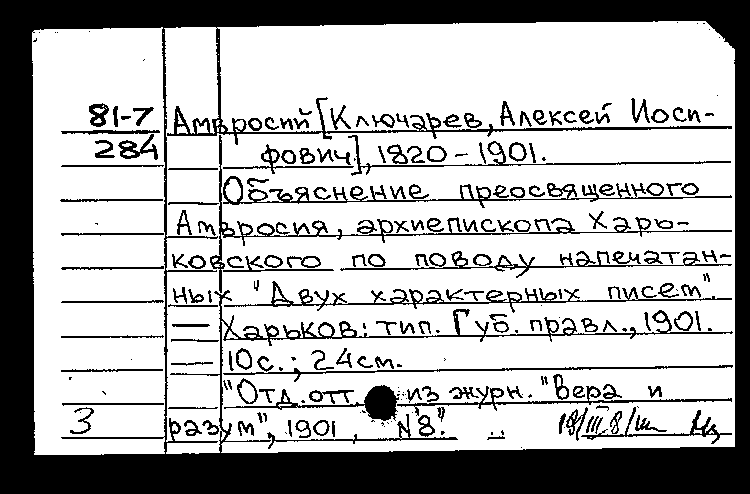 81-7 Амвросий [Ключарев, Алексей Иоси-
284 фович], 1820-1901.
Объяснение преосвященного
Амвросия, архиепископа Харь-
ковского по поводу напечатан-
ных "Двух характерных писем".
— Харьков: тип. Губ. правл., 1901.
— 10с.; 24см.
"Отд. отт. из журн. "Вера и
3 разум", 1901, №8".